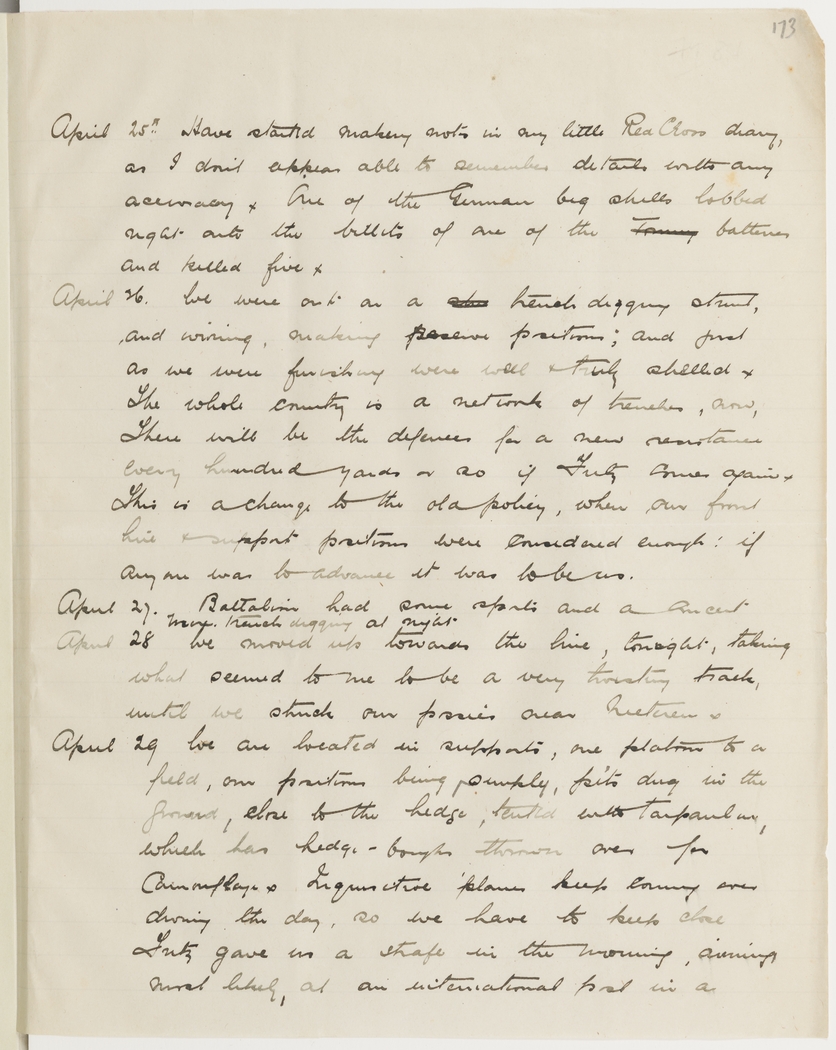 173
April 25th Have started making notes in my little Red Cross diary,
as I don't appear able to remember details with any
accuracy x One of the German big shells lobbed
right onto the billets of one of the Tommy batteries
and killed five x
April 26. We were out on a trench digging stunt,
and wiring, making reserve positions; and just
as we were finishing were well & truly shelled x
The whole country is a network of trenches, now,
There will be the defences for a new resistance
every hundred yards or so if Fritz comes again x
This is a change to the old policy, when our front
line & support positions were considered enough: if
anyone was to advance it was to be us.
April 27. Battalion had some sports and a concert
trench digging at night
April 28 We moved up towards the line, tonight, taking
what seemed to me to be a very twisting track,
until we struck our possies near Meteren x
April 29 We are located in supports, one platoon to a
field, our positions being, simply, pits dug in the
ground, close to the hedge, tented with tarpaulin,
which has hedge-boughs thrown over for
Camouflage x Inquisitive 'planes keep coming over
during the day, so we have to keep close
Fritz gave us a strafe in the morning, aiming
most likely, at an international post in a